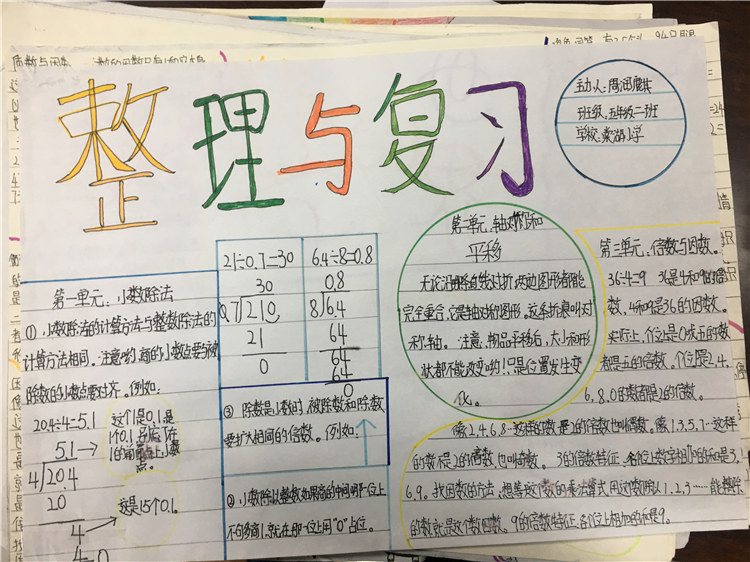 整理与复习
主办人:周润麒
班级:五年级二班
学校:东湖小学
第一单元:小数除法
①小数除法的计算方法与整数除法的
计算方法相同。注意哟,商的小数点要与被
除数的小数点要对齐。例如:
20.4÷4=5.1
5.1→
4√20.4
20
4
4=0
这个1是0.1,是
1个0.1,
1的前面点上小数
点。
这是15个0.1。
21÷0.7=30
30
0.7√21.0
21
0
6.4÷8=0.8
0.8
8√6.4
64
64
64
0
③ 除数是小数时,被除数和除数
要扩大相同的倍数。例如:
②小数除以整数如果商的中间哪一位上
不够商1,就在那一位上用"0"占位。
第二单元,轴对称和
平移
无论沿哪条直线对折,两边图形都能
完全重合,它是轴对称图形。这条折痕叫对
称轴。注意,物品平移后,大小和形
状都不能改变哟!只是位置发生变
化。
第三单元,倍数与因数。
36÷4=9 36是4和9的倍
数,4和9是36的因数。
实际上,个位是0或五的数
都是五的倍数,个位是2.4.
6.8.0的数都是2的倍数。
像2.4.6.8…这样的数是2的倍数也叫偶数。像1.3.5.7…这样
的数不是2的倍数,也叫奇数。3的倍数特征,各位上数字相加的和是3.
6.9。找因数的方法,想
的数就是这个数因数。9的倍数特征,各个位上相加的和是9。